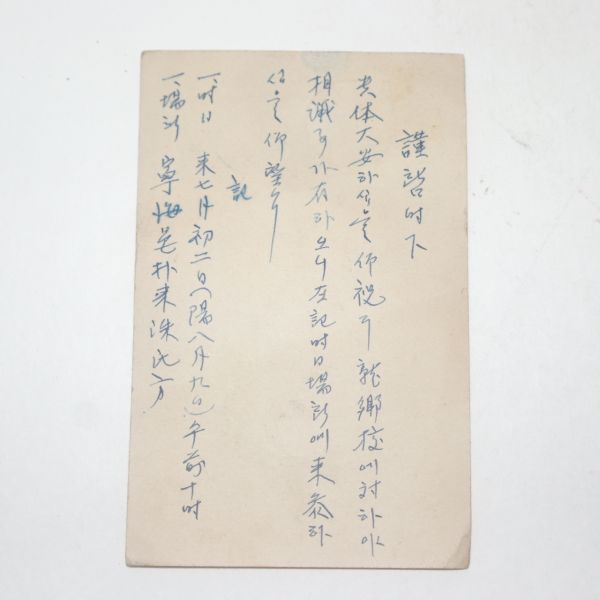 謹詢時下
貴体大安하심을 仰祝耳 就鄕校에 対하야
相議事가 有하오니 左記時日場所에 来参하
심을 仰望事
記
一, 時日 来七月初二日(陽八月九日) 午前十時
一, 場所 寧海邑朴来洙氏方